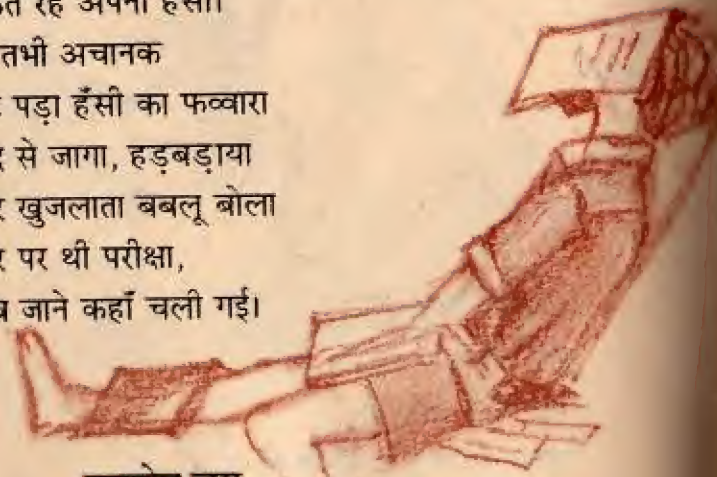 रहे अपनी हँसी।
तभी अचानक
पड़ा हँसी का फव्वारा
से जागा, हड़बड़ाया
खुजलाता बबलू बोला
पर थी परीक्षा,
जाने कहाँ चली गई।